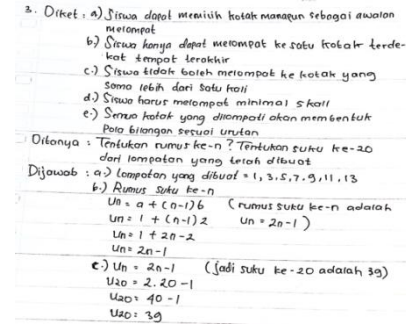 3. Diket : a) Siswa dapat memilih kotak manapun sebagai awalan
melompat
b.) Siswa hanya dapat melompat ke satu kotak terde-
kat tempat terakhir
c.) Siswa tidak boleh melompat ke kotak yang
sama lebih dari satu kali
d.) Siswa harus melompat minimal 5 kali
e.) Semua kotak yang dilompati akan membentuk
Pola bilangan sesuai urutan
Ditanya : Tentukan rumus ke-n ? Tentukan suku ke-20
dari lompatan yang telah dibuat
Dijawab : a.) lompatan yang dibuat = 1, 3, 5, 7, 9, 11, 13
b.) Rumus suku ke-n
Un = a + (n-1) b (rumus suku ke-n adalah
Un = 1 + (n-1) 2 Un = 2n-1 )
Un = 1 + 2n - 2
Un = 2n - 1
c.) Un = 2n - 1 (jadi suku ke-20 adalah 39)
U20 = 2.20 - 1
U20 = 40 - 1
U20 = 39